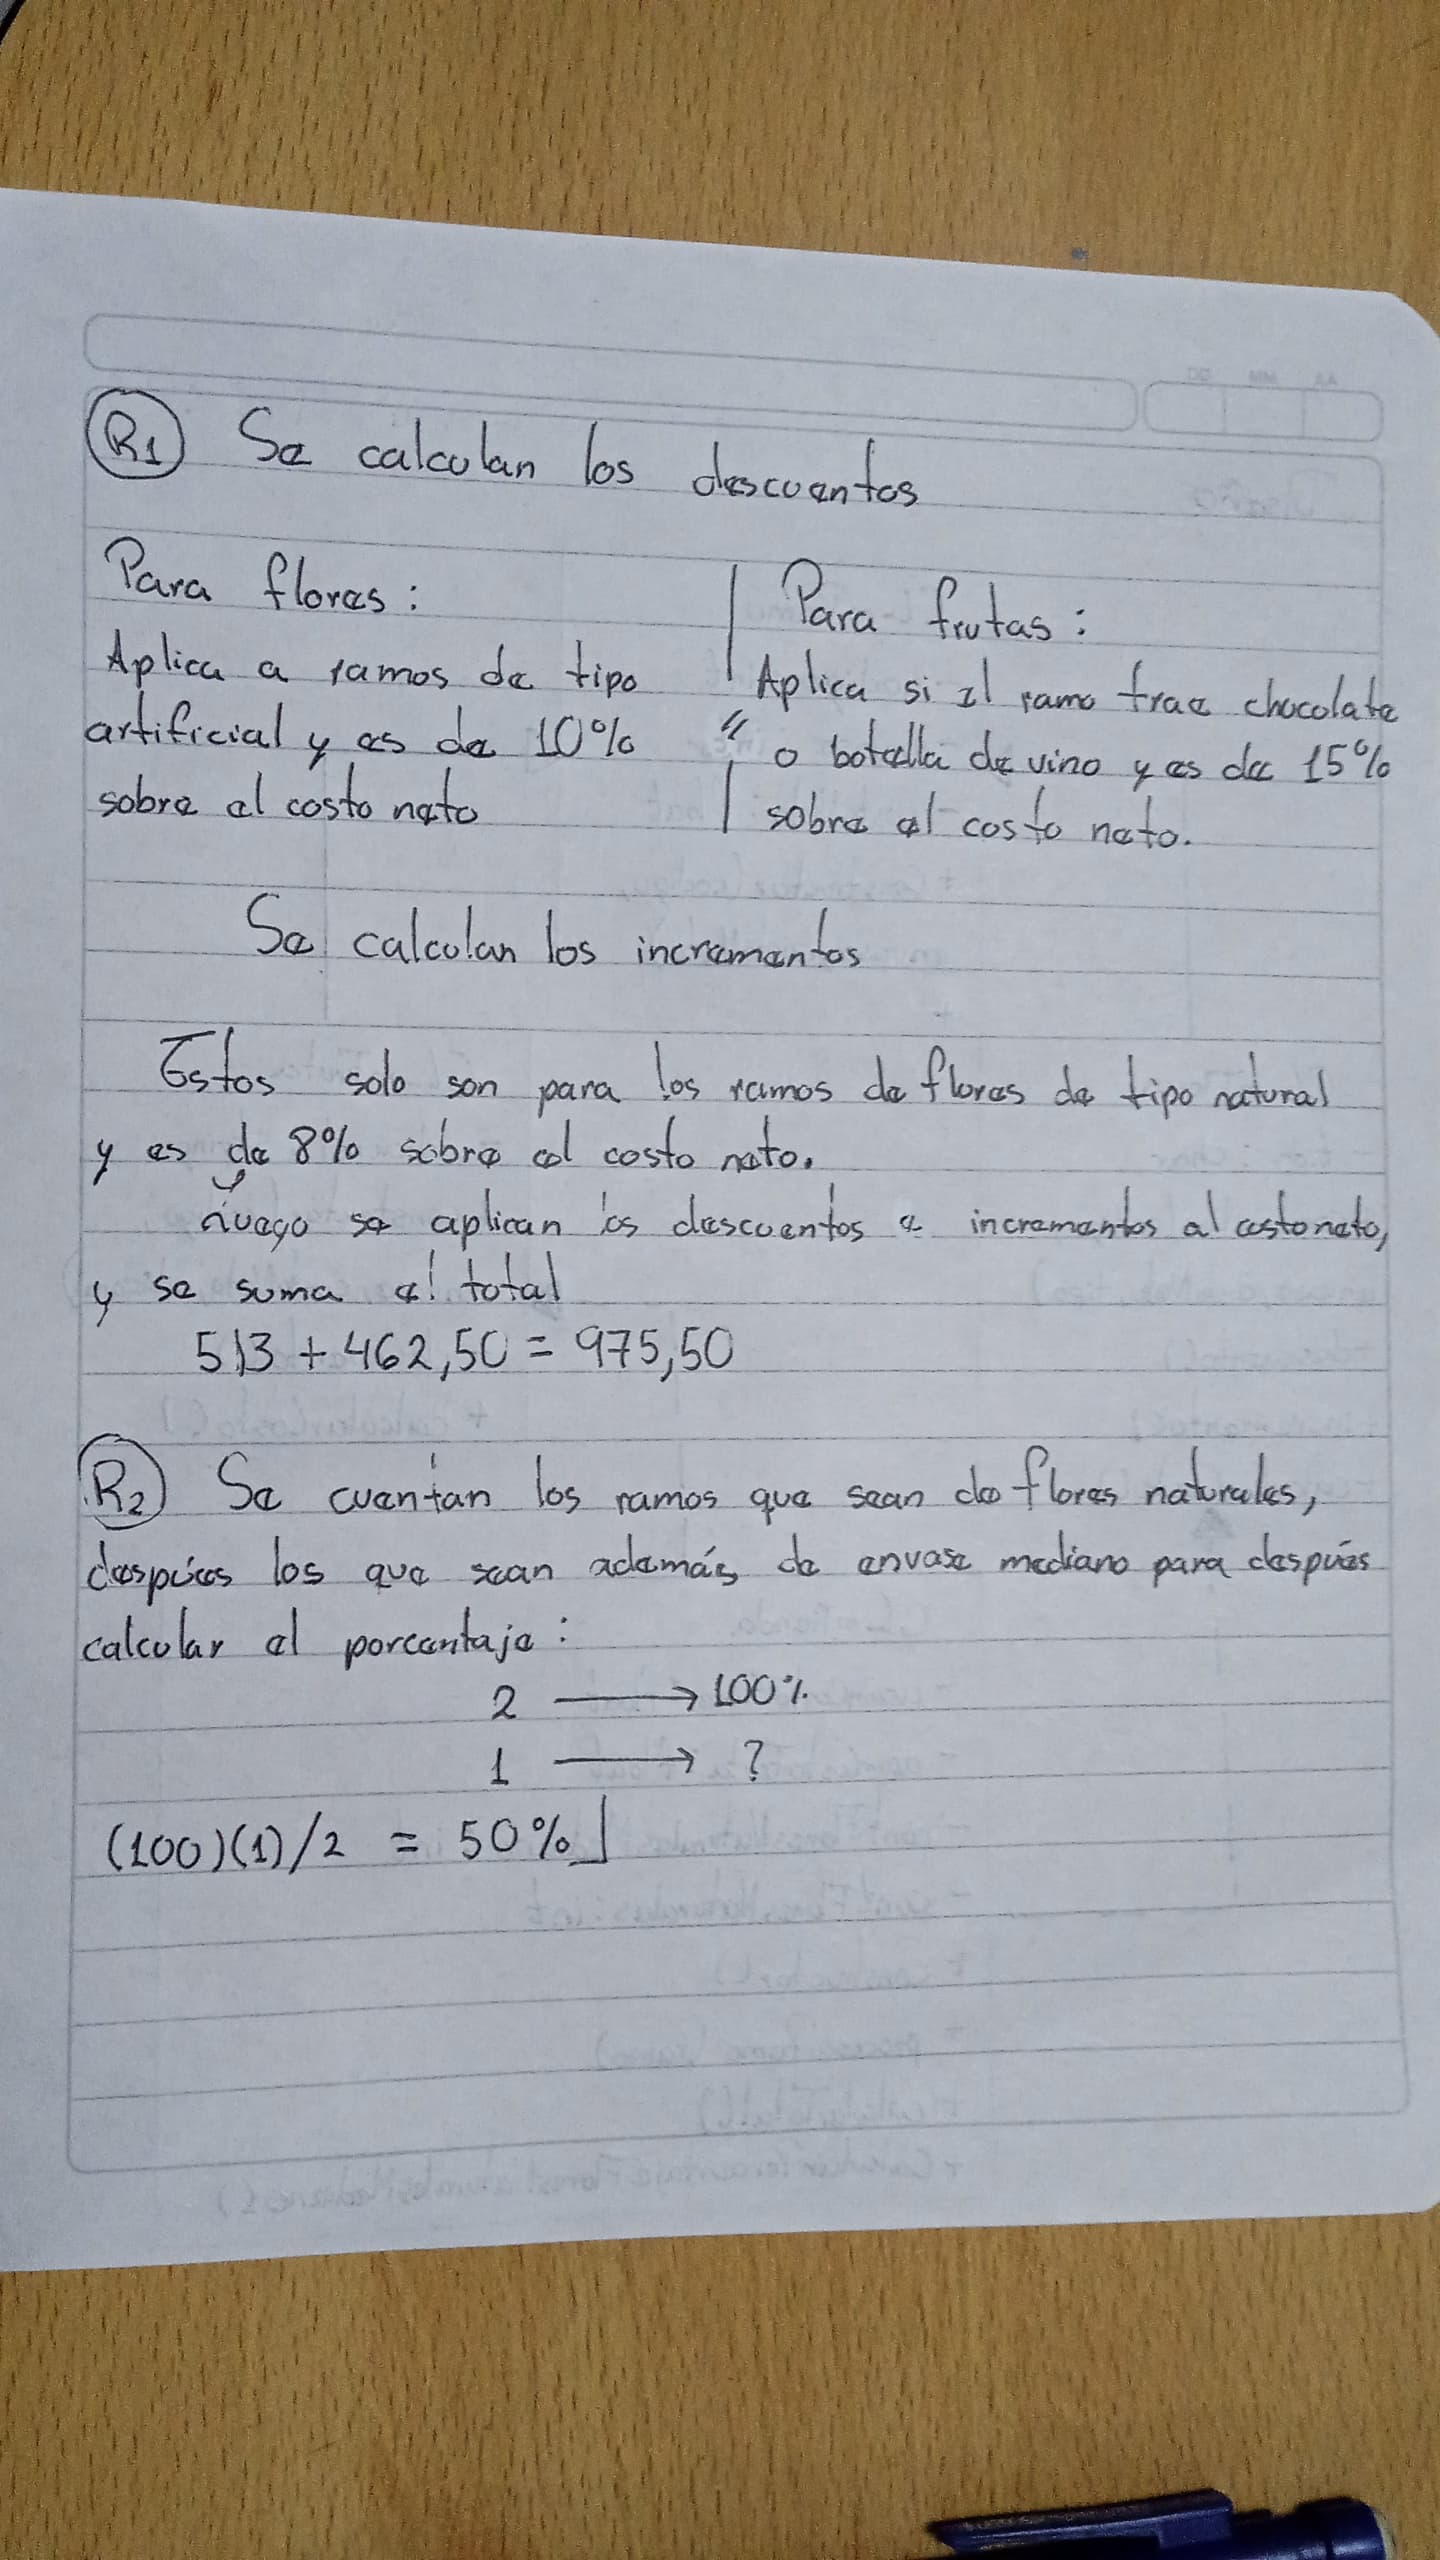 R1 Se calculan los descuentos
Para flores:
Aplica a ramos de tipo
artificial y es de 10%
sobre el costo neto
Para frutas:
Aplica si el ramo trae chocolate
o botella de vino y es de 15%
sobre el costo neto.
Se calculan los incrementos
Estos solo son para los ramos de flores de tipo natural
y es de 8% sobre el costo neto.
Luego se aplican los descuentos e incrementos al costo neto,
y se suma el total
513 + 462,50 = 975,50
R2 Se cuentan los ramos que sean de flores naturales,
después los que sean además de envase mediano para después
calcular el porcentaje:
2 → 100%
1 → ?
(100)(1)/2 = 50%